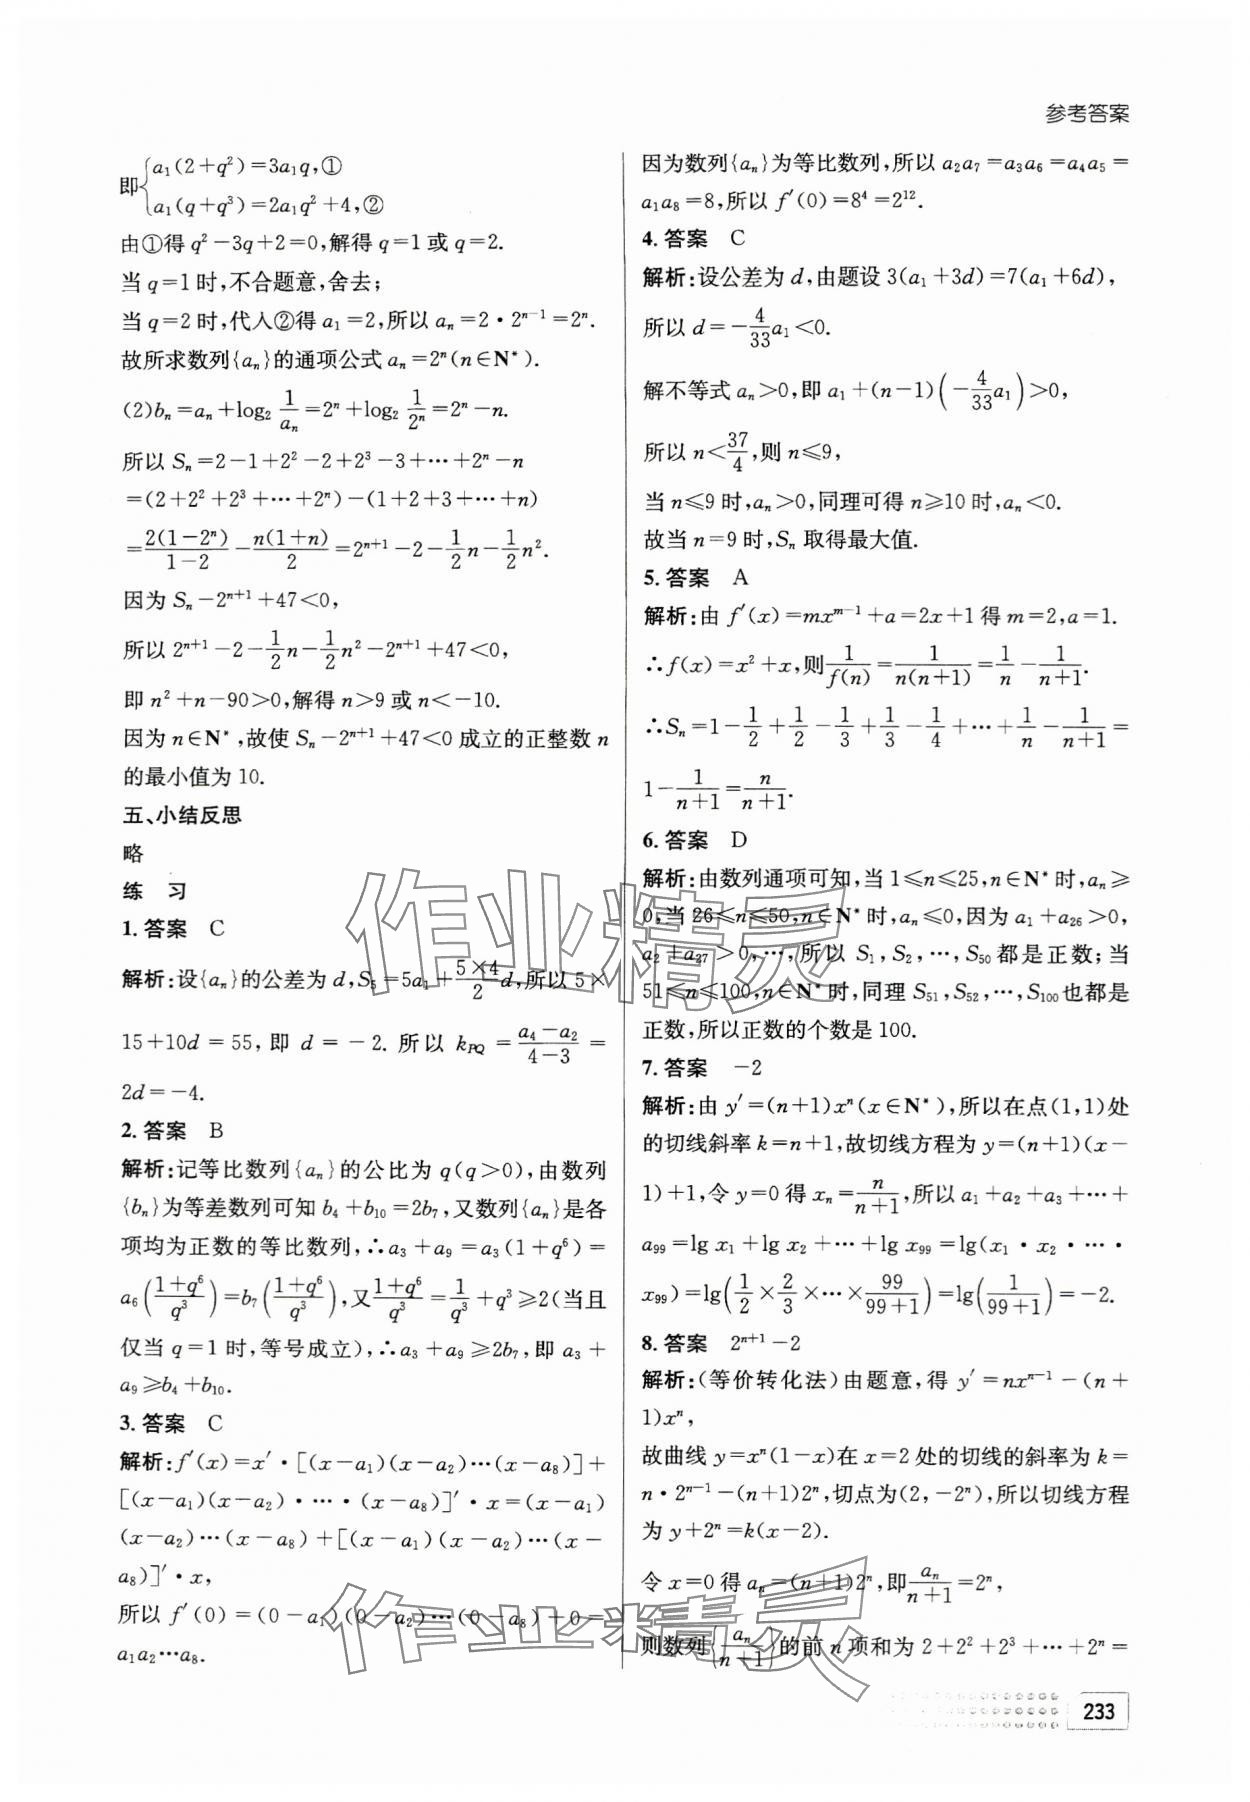 参考答案
即{a₁(2+q²)=3a₁q,①
a₁(q+q³)=2a₁q²+4,②
由①得 q²-3q+2=0,解得 q=1 或 q=2.
当 q=1 时,不合题意,舍去;
当 q=2 时,代入②得 a₁=2,所以 aₙ=2·2ⁿ⁻¹=2ⁿ.
故所求数列{aₙ}的通项公式 aₙ=2ⁿ(n∈N*).
(2)bₙ=aₙ+log₂ 1/aₙ=2ⁿ+log₂ 1/2ⁿ=2ⁿ-n.
所以 Sₙ=2-1+2²-2+2³-3+…+2ⁿ-n
=(2+2²+2³+…+2ⁿ)-(1+2+3+…+n)
=2(1-2ⁿ)/(1-2)-n(1+n)/2=2ⁿ⁺¹-2-1/2 n-1/2 n².
因为 Sₙ-2ⁿ⁺¹+47<0,
所以 2ⁿ⁺¹-2-1/2 n-1/2 n²-2ⁿ⁺¹+47<0,
即 n²+n-90>0,解得 n>9 或 n<-10.
因为 n∈N*,故使 Sₙ-2ⁿ⁺¹+47<0 成立的正整数 n
的最小值为 10.
五、小结反思
略
练 习
1. 答案 C
解析:设{aₙ}的公差为 d,S₅=5a₁+(5×4)/2 d,所以 5×
15+10d=55,即 d=-2.所以 k_PQ=(a₄-a₂)/(4-3)=
2d=-4.
2. 答案 B
解析:记等比数列{aₙ}的公比为 q(q>0),由数列
{bₙ}为等差数列可知 b₄+b₁₀=2b₇,又数列{aₙ}是各
项均为正数的等比数列,∴a₃+a₉=a₃(1+q⁶)=
a₆((1+q⁶)/q³)=b₇((1+q⁶)/q³),又(1+q⁶)/q³=1/q³+q³≥2(当且
仅当 q=1 时,等号成立),∴a₃+a₉≥2b₇,即 a₃+
a₉≥b₄+b₁₀.
3. 答案 C
解析:f′(x)=x′·[(x-a₁)(x-a₂)…(x-a₈)]+
[(x-a₁)(x-a₂)·…·(x-a₈)]′·x=(x-a₁)
(x-a₂)…(x-a₈)+[(x-a₁)(x-a₂)…(x-
a₈)]′·x,
所以 f′(0)=(0-a₁)(0-a₂)…(0-a₈)+0=
a₁a₂…a₈.
因为数列{aₙ}为等比数列,所以 a₂a₇=a₃a₆=a₄a₅=
a₁a₈=8,所以 f′(0)=8⁴=2¹².
4. 答案 C
解析:设公差为 d,由题设 3(a₁+3d)=7(a₁+6d),
所以 d=-4/33 a₁<0.
解不等式 aₙ>0,即 a₁+(n-1)(-4/33 a₁)>0,
所以 n<37/4,则 n≤9,
当 n≤9 时,aₙ>0,同理可得 n≥10 时,aₙ<0.
故当 n=9 时,Sₙ 取得最大值.
5. 答案 A
解析:由 f′(x)=mxᵐ⁻¹+a=2x+1 得 m=2,a=1.
∴f(x)=x²+x,则1/f(n)=1/(n(n+1))=1/n-1/(n+1).
∴Sₙ=1-1/2+1/2-1/3+1/3-1/4+…+1/n-1/(n+1)=
1-1/(n+1)=n/(n+1).
6. 答案 D
解析:由数列通项可知,当 1≤n≤25,n∈N*时,aₙ≥
0,当 26≤n≤50,n∈N*时,aₙ≤0,因为 a₁+a₂₆>0,
a₂+a₂₇>0,…,所以 S₁,S₂,…,S₅₀都是正数;当
51≤n≤100,n∈N*时,同理 S₅₁,S₅₂,…,S₁₀₀也都是
正数,所以正数的个数是 100.
7. 答案 -2
解析:由 y′=(n+1)xⁿ(x∈N*),所以在点(1,1)处
的切线斜率 k=n+1,故切线方程为 y=(n+1)(x-
1)+1,令 y=0 得 xₙ=n/(n+1),所以 a₁+a₂+a₃+…+
a₉₉=lg x₁+lg x₂+…+lg x₉₉=lg(x₁·x₂·…·
x₉₉)=lg(1/2×2/3×…×99/(99+1))=lg(1/(99+1))=-2.
8. 答案 2ⁿ⁺¹-2
解析:(等价转化法)由题意,得 y′=nxⁿ⁻¹-(n+
1)xⁿ,
故曲线 y=xⁿ(1-x)在 x=2 处的切线的斜率为 k=
n·2ⁿ⁻¹-(n+1)2ⁿ,切点为(2,-2ⁿ),所以切线方程
为 y+2ⁿ=k(x-2).
令 x=0 得 aₙ=(n+1)2ⁿ,即aₙ/(n+1)=2ⁿ,
则数列{aₙ/(n+1)}的前 n 项和为 2+2²+2³+…+2ⁿ=
233
作业精灵
作业精灵